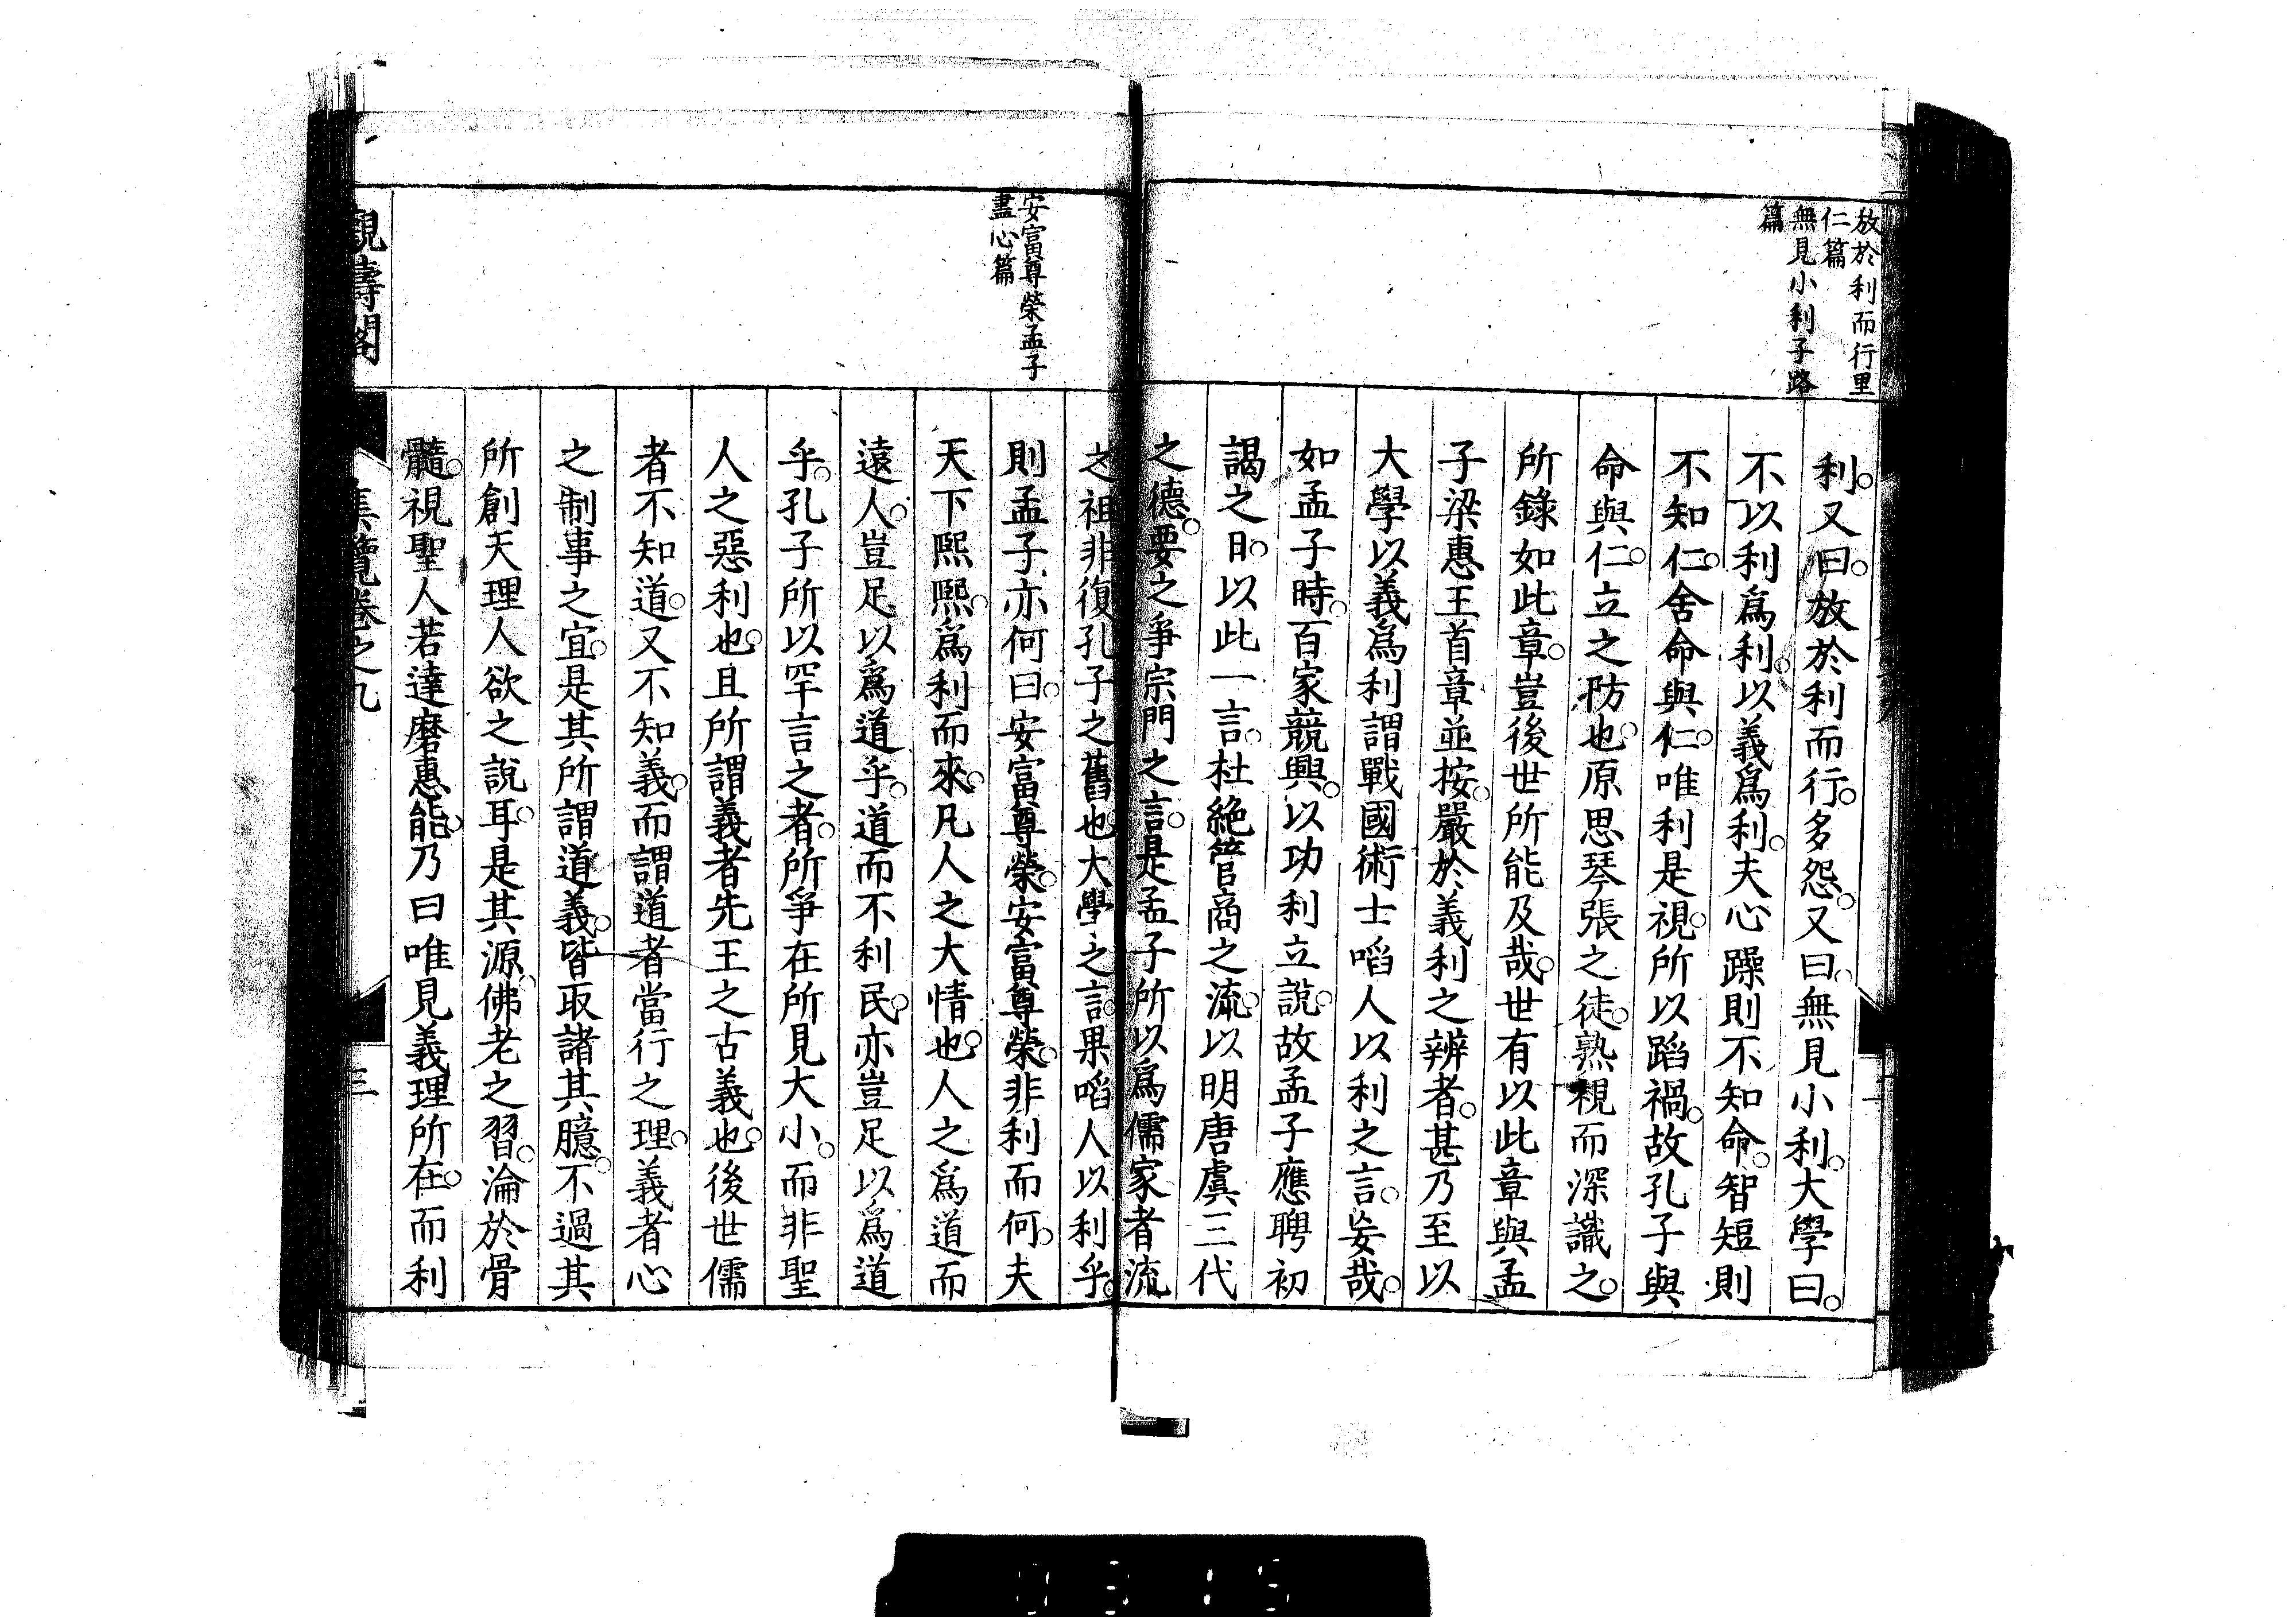 放於利而行里
仁篇
無見小利子路
篇
利。又曰。放於利而行。多怨。又曰。無見小利。大學曰。
不以利爲利。以義爲利。夫心躁則不知命。智短則
不知仁。舍命與仁。唯利是視。所以蹈禍。故孔子與
命與仁。立之防也。原思琴張之徒。熟親而深識之。
所錄如此章。豈後世所能及哉。世有以此章與孟
子梁惠王首章並按。嚴於義利之辨者。甚乃至以
大學以義爲利謂戰國術士啗人以利之言。妄哉。
如孟子時。百家競興。以功利立說。故孟子應聘初
謁之日。以此一言。杜絕管商之流。以明唐虞三代
之德。要之爭宗門之言。是孟子所以爲儒家者流
安富尊榮孟子
盡心篇
之祖非復孔子之舊也。大學之言。果啗人以利乎。
則孟子亦何曰。安富尊榮。安富尊榮。非利而何。夫
天下熙熙。爲利而來。凡人之大情也。人之爲道而
遠人。豈足以爲道乎。道而不利民。亦豈足以爲道
乎。孔子所以罕言之者。所爭在所見大小。而非聖
人之惡利也。且所謂義者先王之古義也。後世儒
者不知道。又不知義。而謂道者當行之理。義者心
之制事之宜。是其所謂道義。皆取諸其臆。不過其
所創天理人欲之說耳。是其源。佛老之習。淪於骨
髓。視聖人若達磨惠能。乃曰唯見義理所在。而利
觀濤閣
集覽卷之九
三